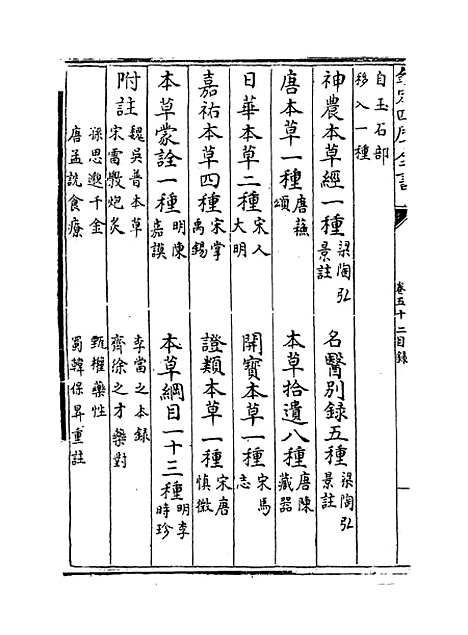 欽定四庫全書
卷五十二目錄
自玉石部
移入一種
神農本草經一種 梁陶弘景註
名醫別錄五種 梁陶弘景註
唐本草一種 唐蘇頌
本草拾遺八種 唐陳藏器
日華本草二種 宋人大明
開寶本草一種 宋馬志
嘉祐本草四種 宋掌禹錫
證類本草一種 宋唐慎微
本草蒙詮一種 明陳嘉謨
本草綱目一十三種 明李時珍
附註
魏吳普本草
李當之本錄
宋雷斅炮炙
齊徐之才藥對
孫思邈千金
甄權藥性
唐孟詵食療
蜀韓保昇重註